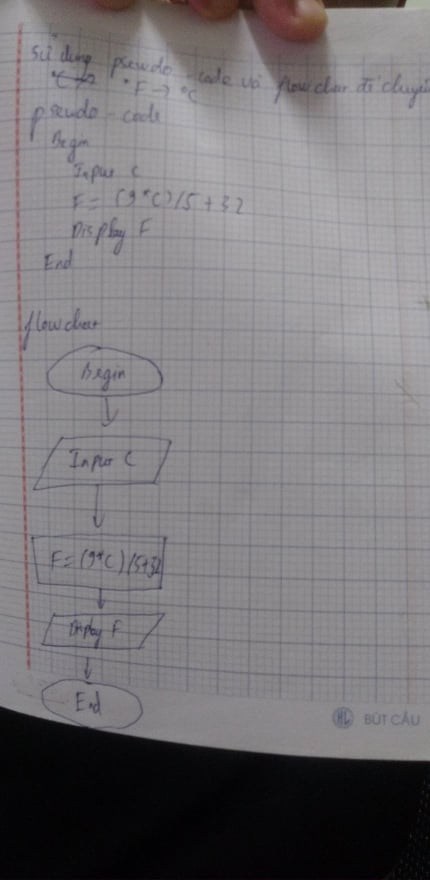 Sử dụng pseudo-code và flowchar để chuyể
°F → °C
pseudo-code
Begin
Input C
F = (9*C)/5+32
Display F
End
flowchar
Begin
Input C
F = (9*C)/5+32
Display F
End
HL BÚT CẦU